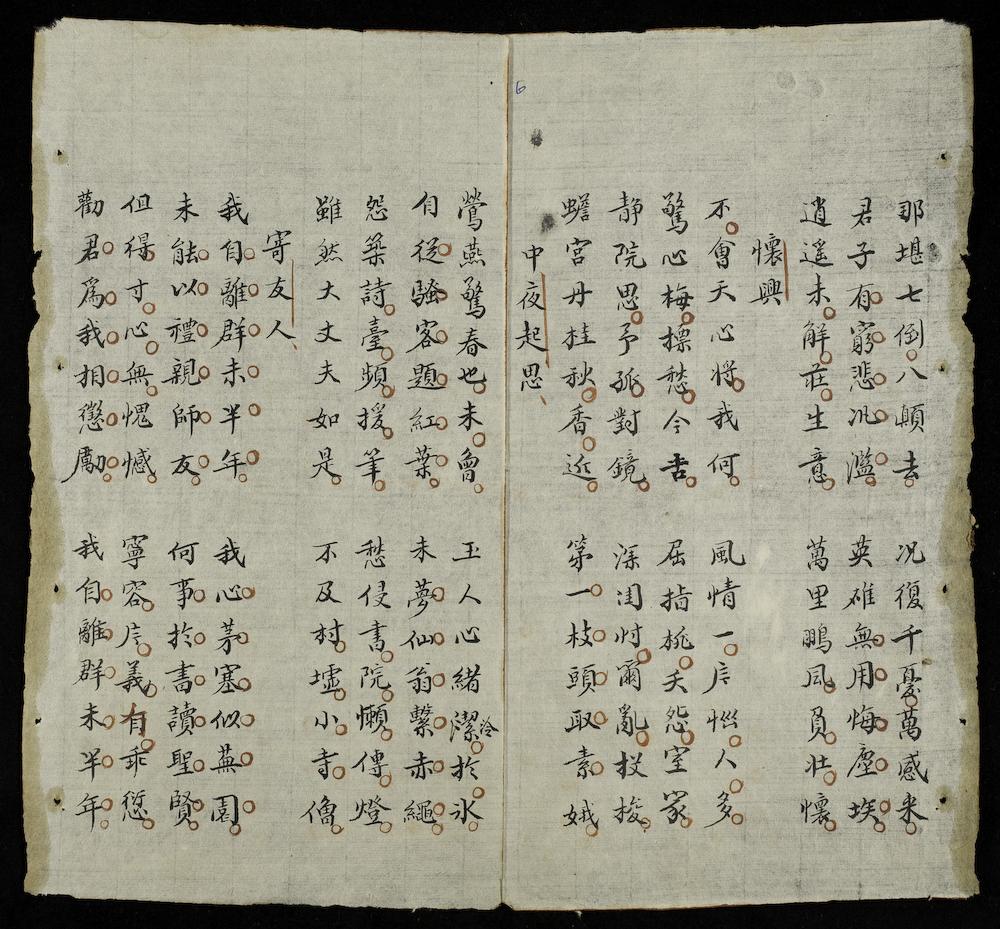 那堪七倒八顛去　况復千憂萬感来
君子有窮悲汎濫　英雄無用悔塵埃
逍遥未解莊生意　萬里鵬風負壮懷
懷興
不會天心将我何　風情一片惱人多
驚心梅摽愁今吉　屈指桃夭怨室家
静院思予孤對鏡　深閨忖爾亂投梭
蟾宮丹桂秋香近　第一枝頭取素娥
中夜起思
鶯燕驚春也未曾　玉人心緒潔於氷
冷
自從騷客題紅葉　未夢仙翁繫赤繩
怨築詩臺頻援筆　愁侵書院懶傳燈
雖然大丈夫如是　不及村墟小寺僧
寄友人
我自離群未半年　我心茅塞似蕪園
未能以禮親師友　何事於書讀聖賢
但得寸心無愧憾　寧容片義有乖愆
勸君爲我相懲勵　我自離群未半年
6